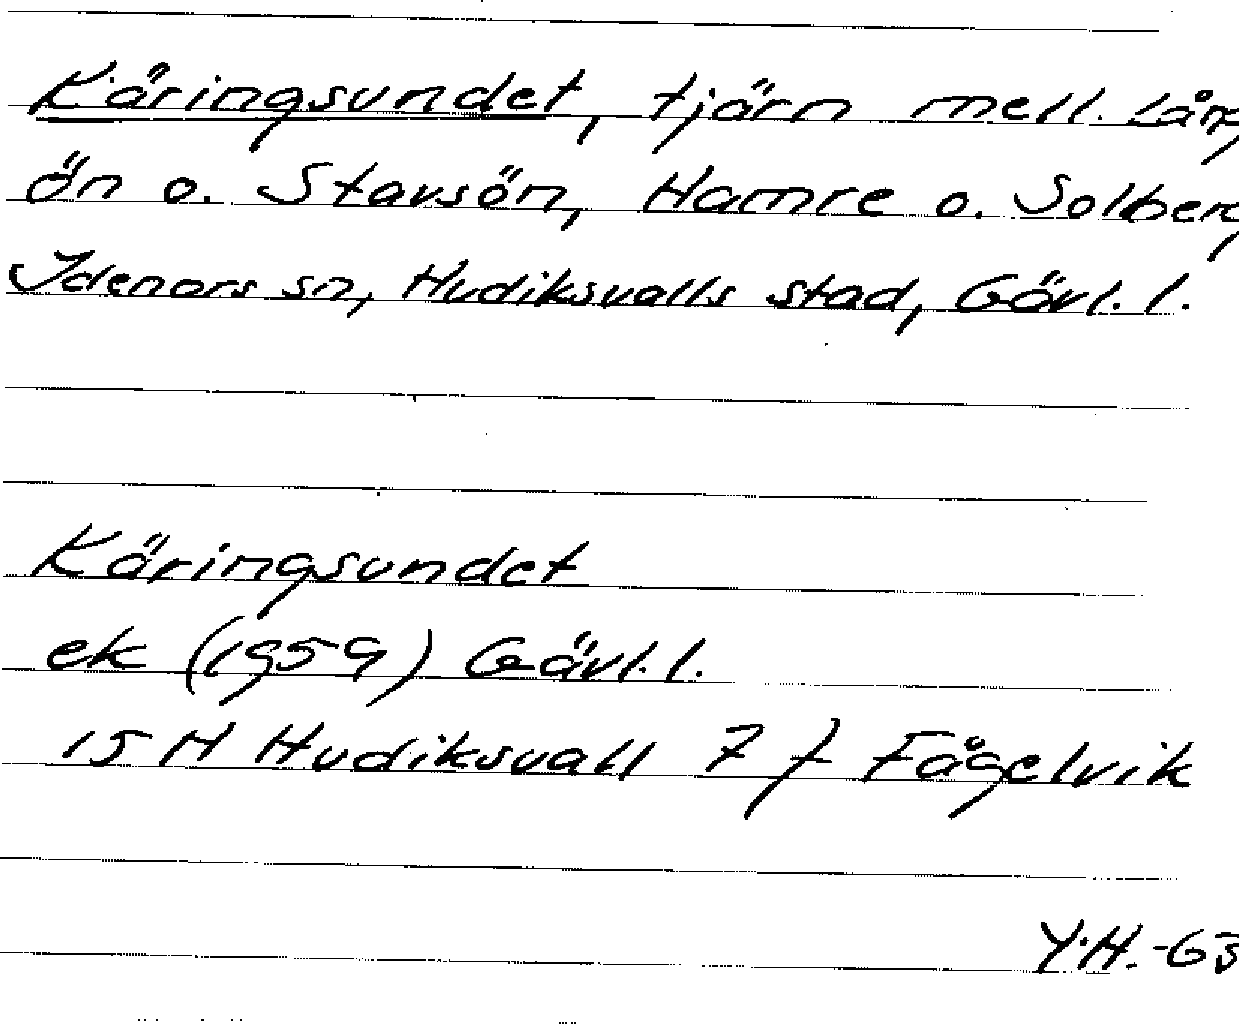 Käringsundet, tjärn mell. Lång
ön o. Stavsön, Hamre o. Solberg
Idenors sn, Hudiksvalls stad, Gävl. l.
Käringsundet
ek (1959) Gävl. l.
15 H Hudiksvall 7 f Fågelvik
Y.H. -63